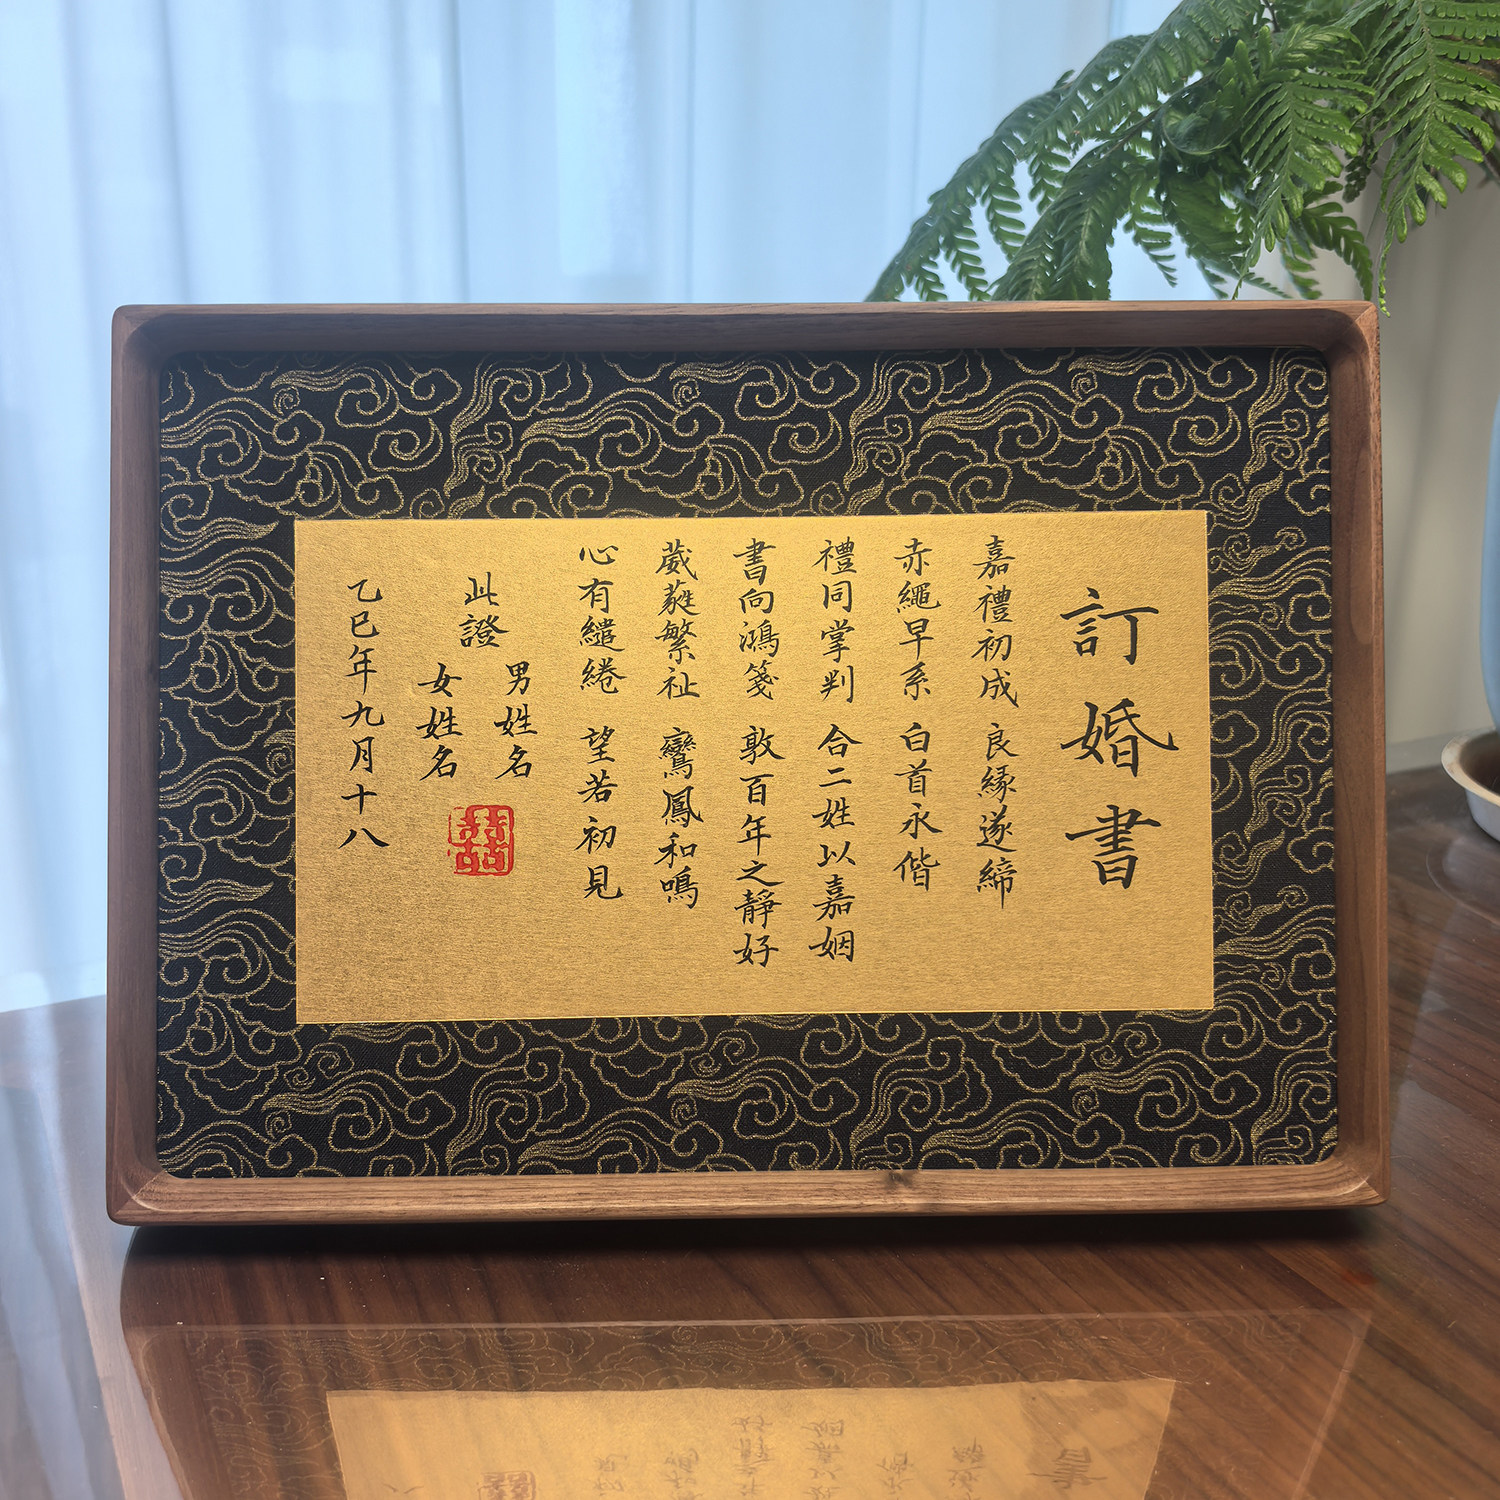 訂婚書
嘉禮初成 良緣遂締
赤繩早系 白首永偕
禮同掌判 合二姓以嘉姻
書向鴻箋 敦百年之靜好
葳蕤繁祉 鸞鳳和鳴
心有繾綣 望若初見
此證
男姓名
女姓名
乙巳年九月十八